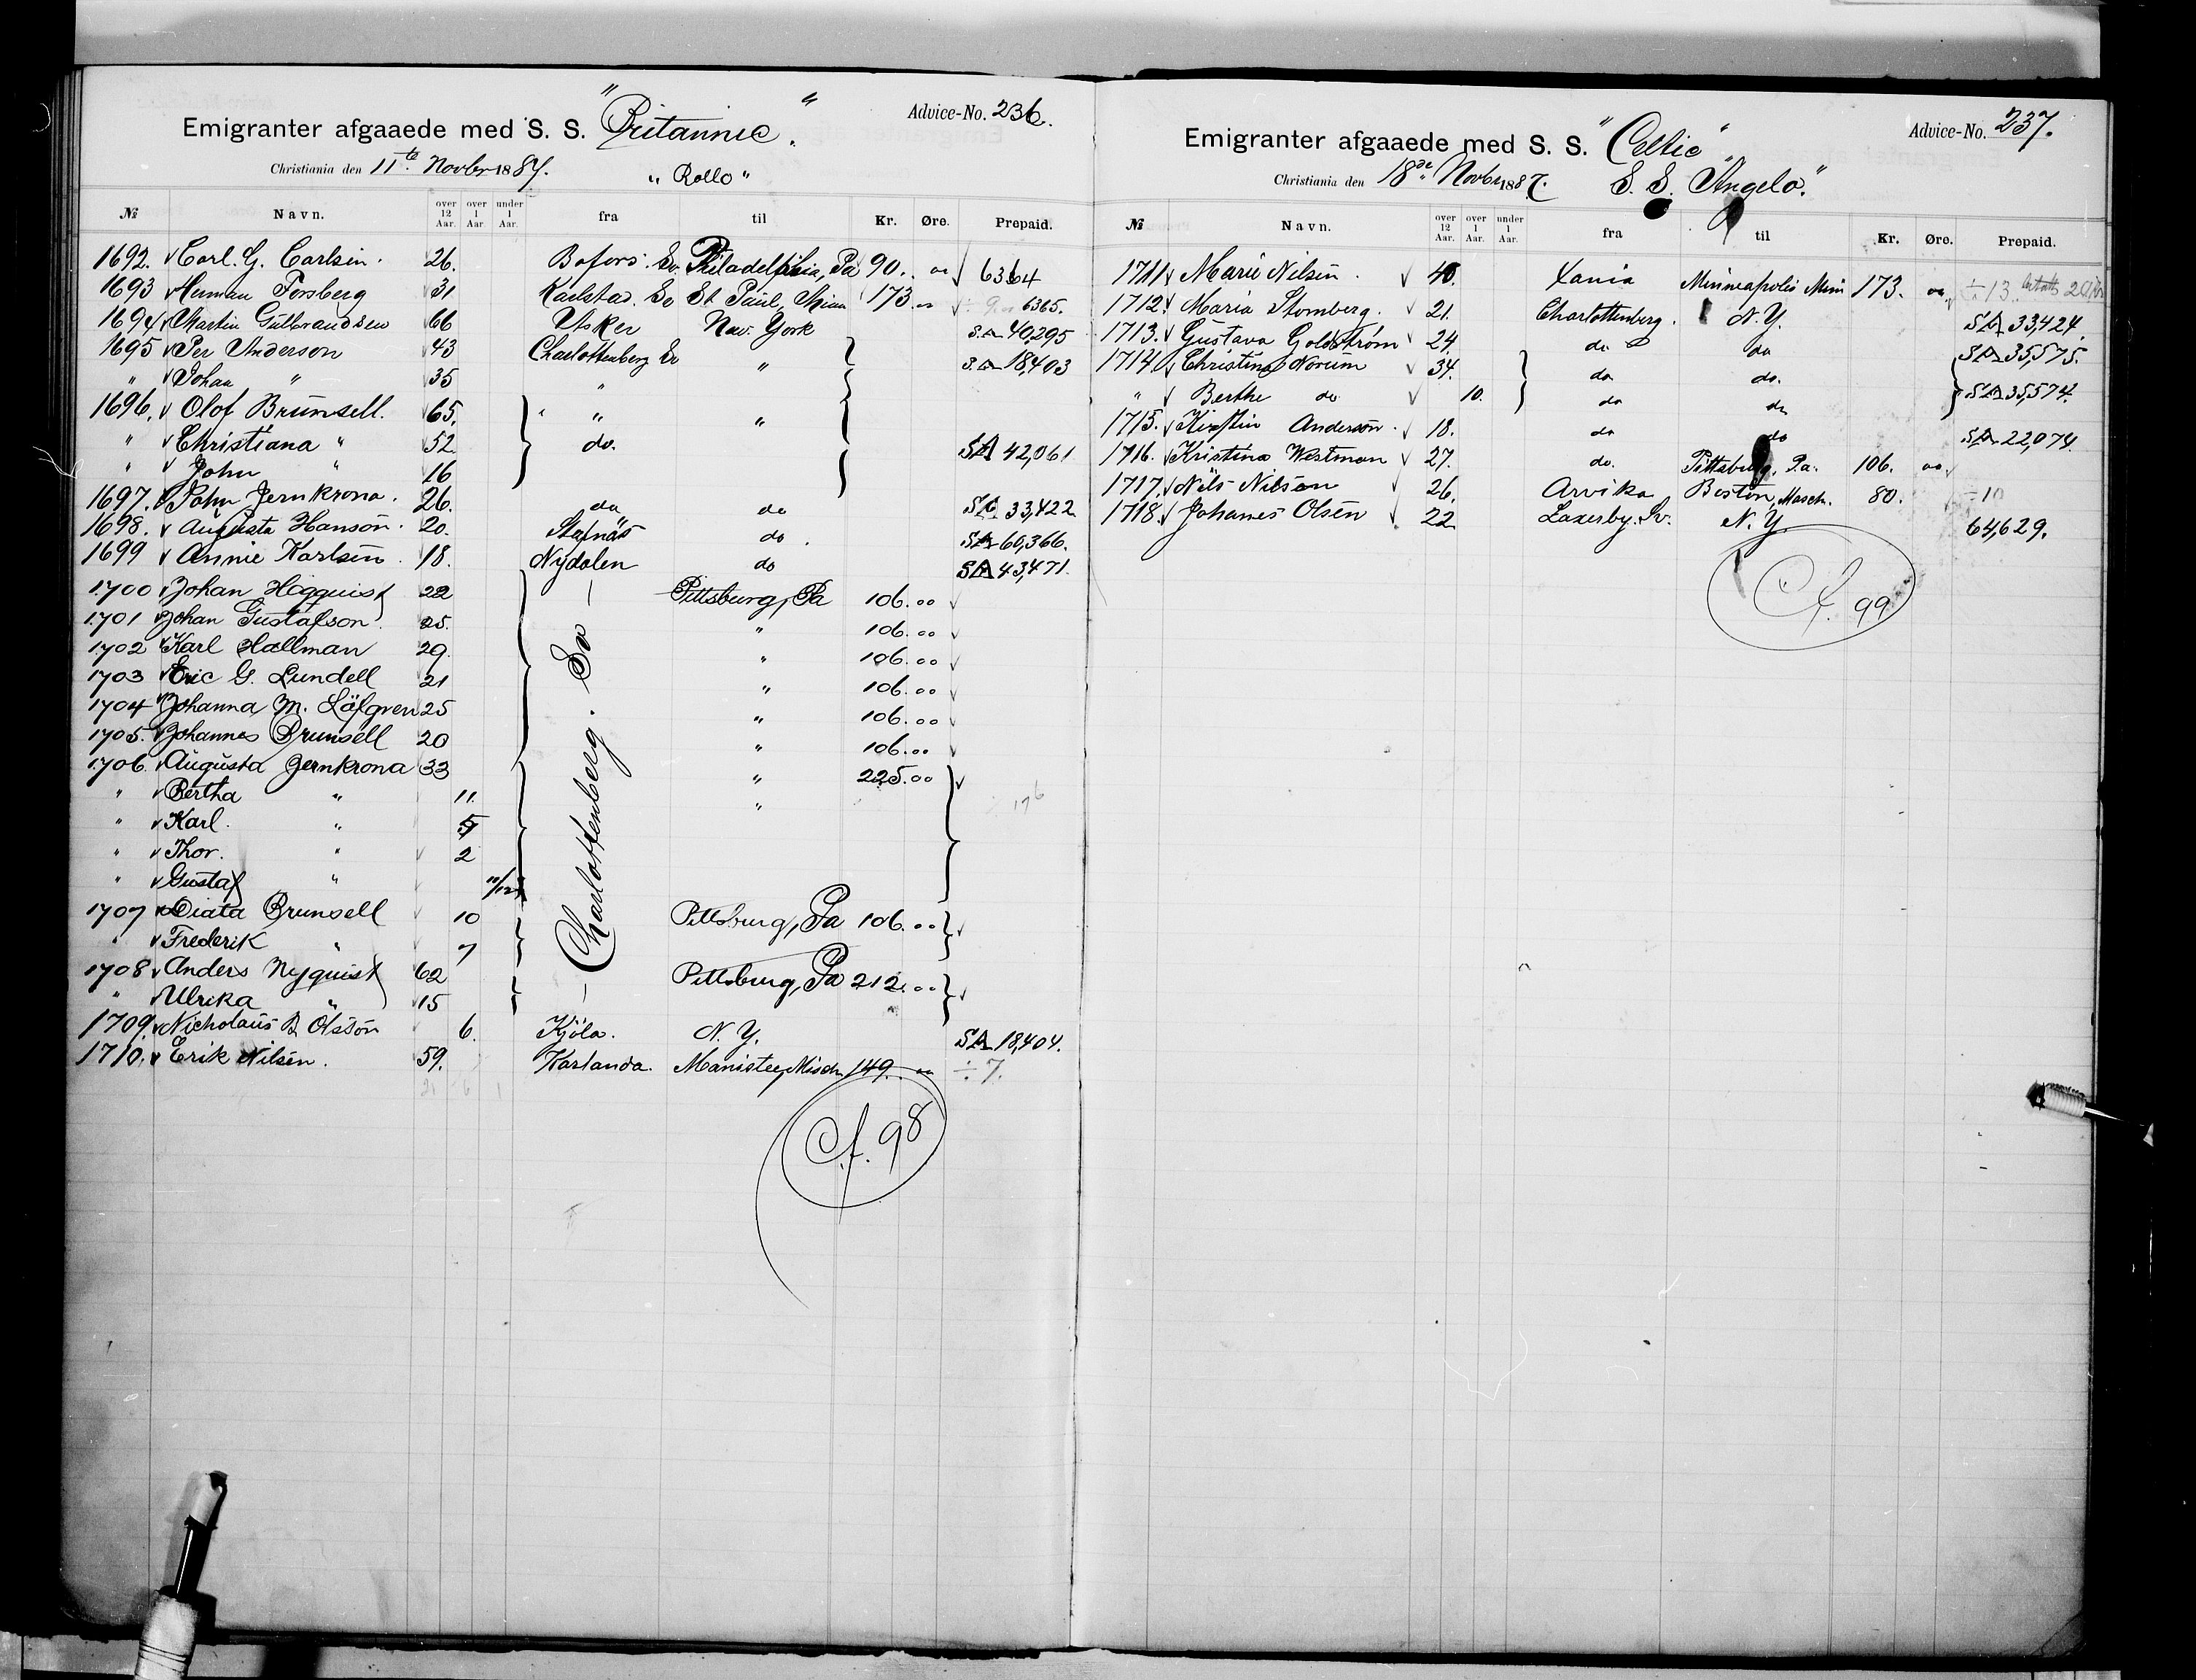 Emigranter afgaaede med S. S. "Britannic". Advice-No. 236.
Christiania den 11te Novbr 1887. "Rollo"
№ Navn. over 12 Aar. over 1 Aar. under 1 Aar. fra til Kr. Øre. Prepaid.
1692. Carl. G. Carlsen. 26. Bofors. Sv. Philadelphia, Pa 90. 00 6364
1693 Herman Forsberg 31 Karlstad. Sv St Paul, Minn 173. 00 6365.
1694 Martin Gulbrandsen 66 Asker New York S.A 40,295
1695 Per Anderson 43 Charlottenberg Sv " S.A 18,403
" Johan " 35 "
1696. Olof Brunsell. 65. " "
" Christiana " 52. do. SA 42,061
" John " 16
1697. John Jernkrona. 26. do do SA 33,422
1698. Augusta Hanson. 20. Stafnäs do. SA 60,366.
1699 Annie Karlsen. 18. Nydalen do SA 43,471.
1700 Johan Högquist 22 Charlottenberg. Sv Pittsburg, Pa 106.00
1701 Johan Gustafson. 25. " 106.00
1702 Karl Hallman 29. " 106.00
1703 Eric G. Lundell 21 " 106.00
1704 Johanna M. Löfgren 25 " 106.00
1705. Johannes Brunsell 20 " 106.00
1706. Augusta Jernkrona 33 " 225.00
" Bertha " 11. "
" Karl. " 5
" Thor. " 2
" Gustaf "
1707 Brunsell 10 Pittsburg, Pa 106.00
" Frederik " 7
1708 Anders Nyquist 62 Pittsburg, Pa 212.00
" Ulrika " 15
1709. Nicholaus B. Olsson 6. Kjöla. N. Y. SA 18,404.
1710. Erik Nilsen. 59. Karlanda. Manistee, Misch 149. 00 ÷ 7.
Cf. 98
Emigranter afgaaede med S. S. "Celtic" Advice-No. 237.
Christiania den 18de Novbr 1887. S. S. "Angelo."
№ Navn. over 12 Aar. over 1 Aar. under 1 Aar. fra til Kr. Øre. Prepaid.
1711 Marie Nilsen. 40. Xania Minneapolis Minn 173. 00 ÷ 13
1712. Maria Stomberg. 21. Charlottenberg. N. Y. SA 33,424.
1713. Gustava Goldstrøm 24. do do SA 35,575.
1714 Christina Norum 34. do do. SA 35,574.
" Berthe do 10. do do
1715. Kirstin Anderson. 18. do do SA 22,074.
1716. Kristina Westman 27. do. Pittsburg, Pa. 106. 00
1717. Nils Nilson 26. Arvika Boston, Masch. 80. ÷ 10
1718. Johanes Olsen 22. Laxerby. Sv. N. Y. 64,629.
Cf. 99